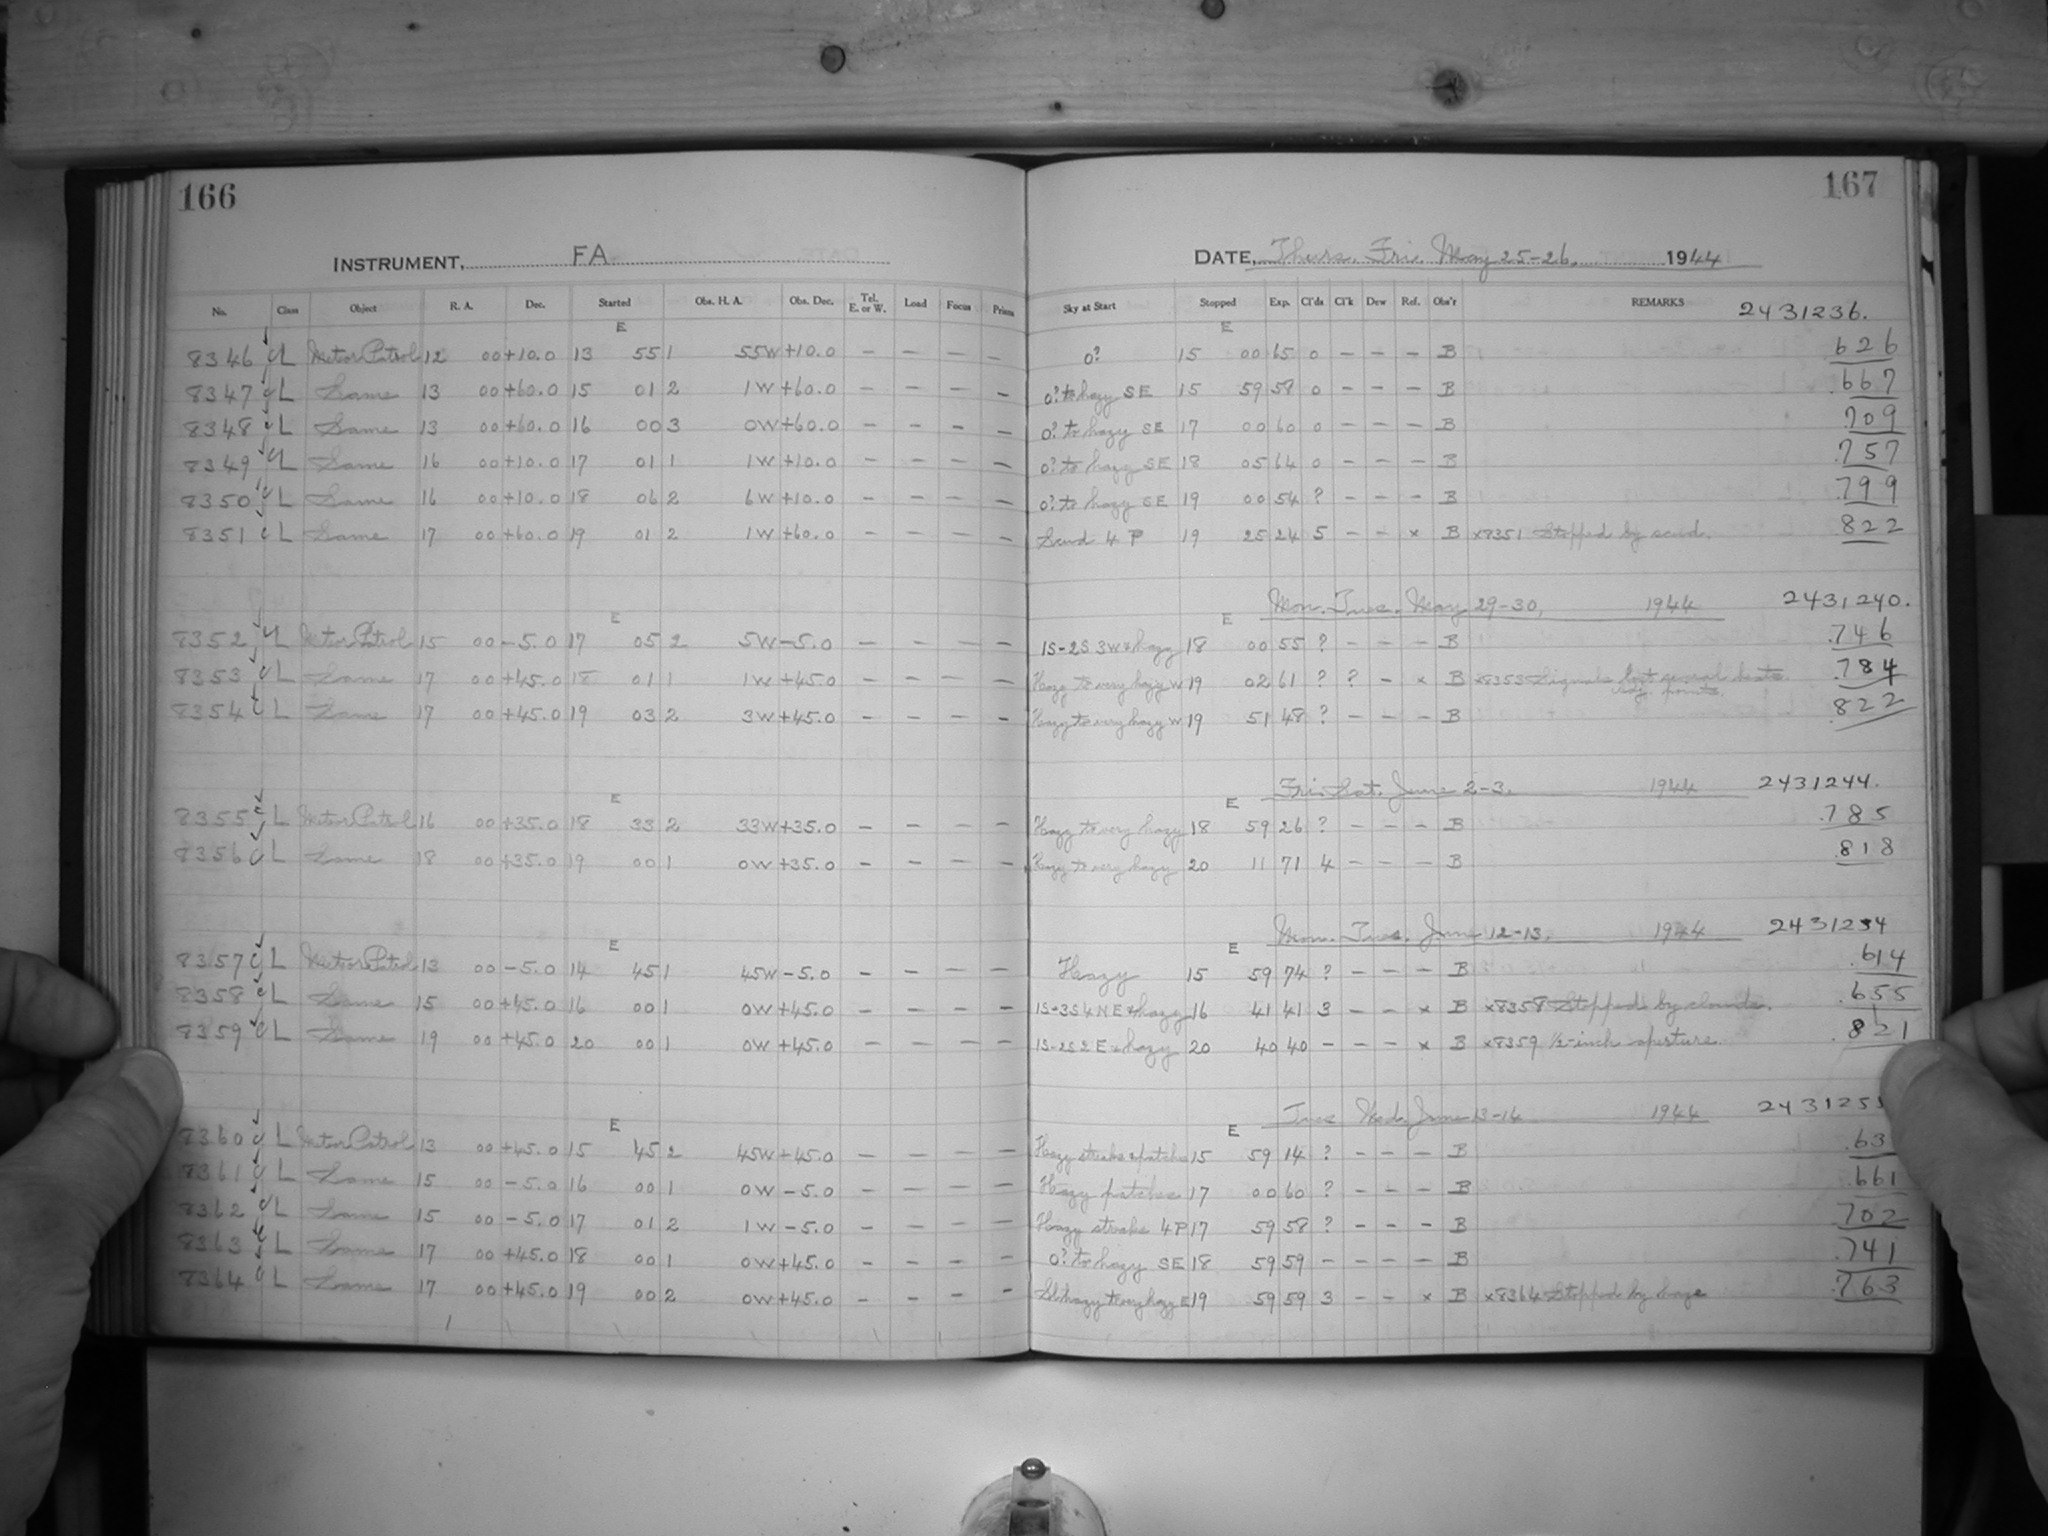 166
INSTRUMENT, FA
No. Class Object R. A. Dec. Started Obs. H. A. Obs. Dec. Tel. E. or W. Load Focus Prisms
E
8346 L Meteor Patrol 12 00 +10.0 13 55 1 55W +10.0 — — — —
8347 L Same 13 00 +60.0 15 01 2 1W +60.0 — — — —
8348 L Same 13 00 +60.0 16 00 3 0W +60.0 — — — —
8349 L Same 16 00 +10.0 17 01 1 1W +10.0 — — — —
8350 L Same 16 00 +10.0 18 06 2 6W +10.0 — — — —
8351 L Same 17 00 +60.0 19 01 2 1W +60.0 — — — —
E
8352 L Meteor Patrol 15 00 -5.0 17 05 2 5W -5.0 — — — —
8353 L Same 17 00 +45.0 18 01 1 1W +45.0 — — — —
8354 L Same 17 00 +45.0 19 03 2 3W +45.0 — — — —
E
8355 L Meteor Patrol 16 00 +35.0 18 33 2 33W +35.0 — — — —
8356 L Same 18 00 +35.0 19 00 1 0W +35.0 — — — —
E
8357 L Meteor Patrol 13 00 -5.0 14 45 1 45W -5.0 — — — —
8358 L Same 15 00 +45.0 16 00 1 0W +45.0 — — — —
8359 L Same 19 00 +45.0 20 00 1 0W +45.0 — — — —
E
8360 L Meteor Patrol 13 00 +45.0 15 45 2 45W +45.0 — — — —
8361 L Same 15 00 -5.0 16 00 1 0W -5.0 — — — —
8362 L Same 15 00 -5.0 17 01 2 1W -5.0 — — — —
8363 L Same 17 00 +45.0 18 00 1 0W +45.0 — — — —
8364 L Same 17 00 +45.0 19 00 2 0W +45.0 — — — —
167
DATE, Thurs. Fri. May 25-26, 1944
Sky at Start Stopped Exp. Cl'ds Cl'k Dew Ref. Obs'r REMARKS 2431236.
E
0? 15 00 65 0 — — — B .626
0? to hazy SE 15 59 58 0 — — — B .667
0? to hazy SE 17 00 60 0 — — — B .709
0? to hazy SE 18 05 64 0 — — — B .757
0? to hazy SE 19 00 54 ? — — — B .799
Scud 4 P 19 25 24 5 — — x B x8351 Stopped by scud. .822
Mon. Tues. May 29-30, 1944 2431240.
E
1S-2S 3W & hazy 18 00 55 ? — — — B .746
Hazy to very hazy W 19 02 61 ? ? — x B x8353 Signals lost several beats .784
Hazy to very hazy W 19 51 48 ? — — — B .822
Fri. Sat. June 2-3. 1944 2431244.
E
Hazy to very hazy 18 59 26 ? — — — B .785
Hazy to very hazy 20 11 71 4 — — — B .818
Mon. Tues. June 12-13. 1944 2431254
E
Hazy 15 59 74 ? — — — B .614
1S-3S 4NE & hazy 16 41 41 3 — — x B x8358 Stopped by clouds. .655
1S-2S 2E & hazy 20 40 40 — — — x B x8359 ½-inch aperture. .821
Tues. Wed. June 13-14 1944 243125
E
Hazy streaks & patches 15 59 14 ? — — — B .63
Hazy patches 17 00 60 ? — — — B .661
Hazy streaks 4P 17 59 58 ? — — — B .702
0? to hazy SE 18 59 59 — — — — B .741
Sl. hazy to very hazy E 19 59 59 3 — — x B x8364 Stopped by haze .763